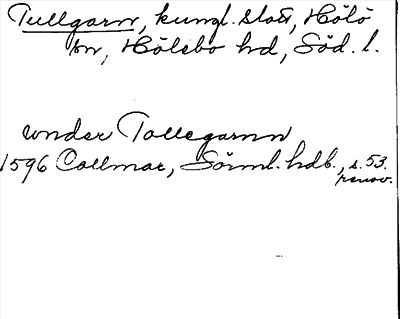 Tullgarn, kungl. slott, Hölö
sn, Hölebo hd, Söd. l.
under Tollegarnn
1596 Collmar, Sörml. hdb., s. 53.